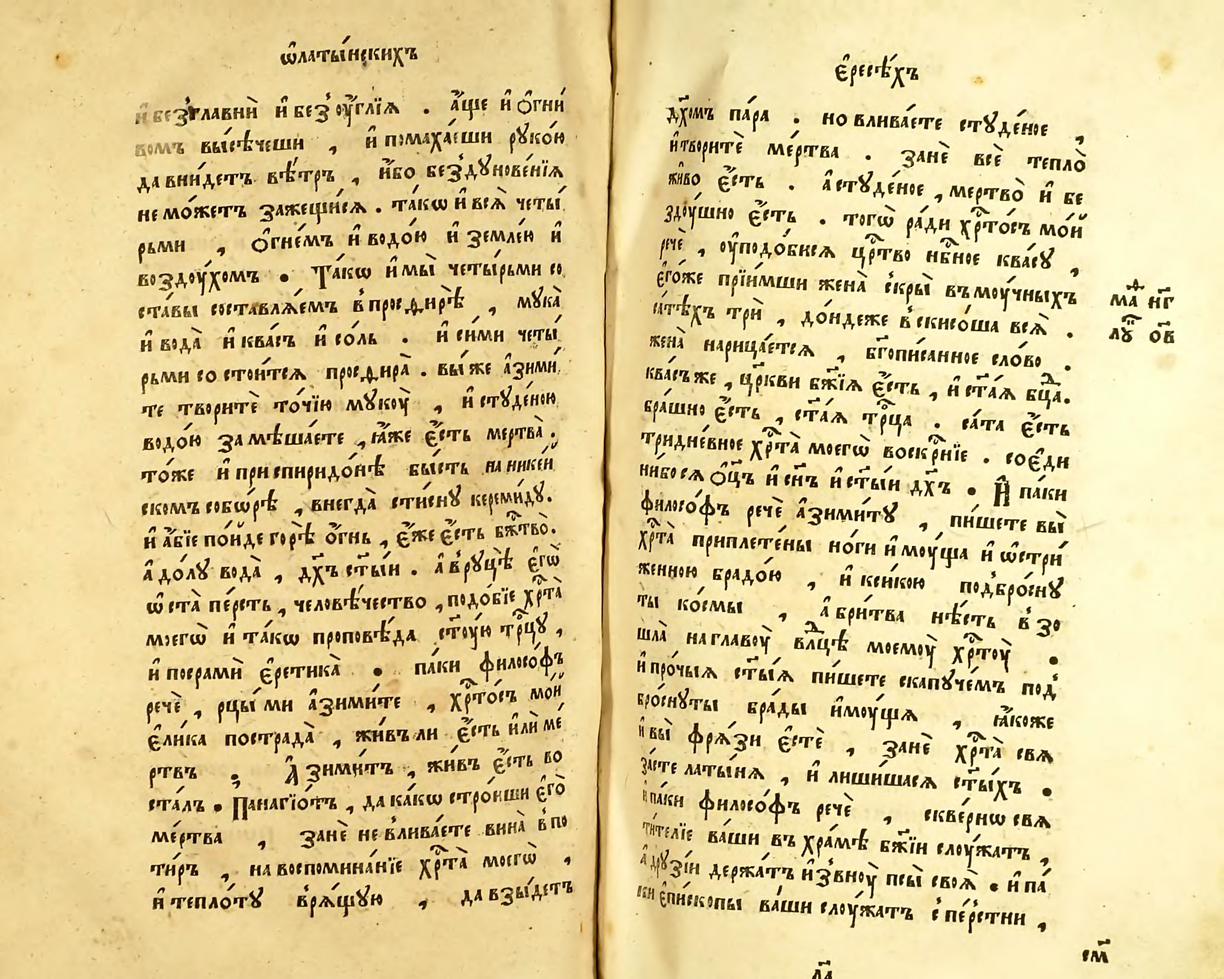 ѡ҆латы́нскихъ
и҆безглавнѐ и҆без̾оу҆́глїѧ . а҆́ще и҆ѻ҆гни́
вомъ высѣ́чеши , и҆помаха́еши рꙋко́ю
давни́детъ вѣ́тръ , и҆́бо без̾дꙋнове́нїѧ
немо́жетъ зажещи́сѧ . та́кѡ и҆всѧ̀ четы́
рьми , ѻ҆гне́мъ и҆водо́ю и҆землею и҆
воздоу́хомъ . Та́кѡ и҆мы̀ четы́рьми со
ста́вы составлѧ́емъ в̾просѳирѣ̀ , мꙋка̀
и҆вода̀ и҆ква́съ и҆со́ль . и҆си́ми четы́
рьми состои́тсѧ просѳира̀ . выже а҆зими́
те творитѐ то́чїю мꙋко́ꙋ , и҆стꙋде́ною
водо́ю замѣша́ете , ꙗ҆́же є҆́сть мертва̀ .
то́же и҆приспиридо́нѣ бы́сть наникеи́
скомъ собо́рѣ , внегда̀ сти́снꙋ кереми́дꙋ .
и҆а҆́бїе по́йде горѣ̀ ѻ҆́гнь , є҆́же є҆́сть бж҃тво̀ .
а҆до́лꙋ вода̀ , дх҃ъ ст҃ы́и . а҆врꙋцѣ̀ є҆гѡ̀
ѡ҆ста̀ пе́рсть , человѣ́чество , подо́бїе хр҃та̀
моегѡ̀ и҆та́кѡ проповѣ́да ст҃ꙋ́ю тр҃цꙋ ,
и҆посрамѝ є҆ретика̀ . па́ки фило́соѳъ
речѐ , рцы́ ми а҆зими́те , хр҃то́съ мо́й
є҆ли́ка пострада̀ , жи́въли є҆́сть и҆лѝ ме́
ртвъ ; А҆зими́тъ , жи́въ є҆́сть во
ста́лъ . Панагїѡ́тъ , дака́кѡ стро́иши є҆го̀
ме́ртва , занѐ не в̾лива́ете вина̀ в̾по
ти́ръ , навоспомина́нїе хр҃та̀ моегѡ̀ ,
и҆теплотꙋ̀ врѧ́щꙋю , да взы́детъ
є҆ресѣ́хъ
дх҃омъ па́ра . но влива́ете стꙋде́ное ,
и҆творитѐ ме́ртва . занѐ всѐ тепло̀
живо є҆́сть . а҆стꙋде́ное , мертво̀ и҆ бе
здоу́шно є҆́сть . тогѡ̀ ра́ди хр҃то́съ мо́й
речѐ , оу҆подо́бисѧ цр҃тво нб҃ное ква́сꙋ ,
є҆го́же прїи́мши жена̀ скры̀ въмоу́чныхъ
са́тѣхъ трѝ , до́ндеже в̾скисо́ша всѧ̀ .
жена̀ нарица́етсѧ , бг҃описанное сло́во .
ква́съже , цр҃кви бж҃їѧ є҆́сть , и҆ст҃а́ѧ бц҃а .
бра́шно є҆́сть , ст҃а́ѧ тр҃ца . са́та є҆́сть
тридне́вное хр҃та̀ моегѡ̀ воскр҃нїе . соє҆ди
ни́босѧ ѻ҆ц҃ъ и҆сн҃ъ и҆ст҃ы́и дх҃ъ . И҆ па́ки
фило́соѳъ речѐ а҆зими́тꙋ , пи́шете вы̀
хр҃та̀ приплете́ны но́ги и҆мꙋ́ща и҆ ѡ҆стри́
женною брадо́ю , и҆ксико́ю под̾бро́снꙋ
ты ко́смы , а҆бри́тва нѣ́сть в̾зо
шла̀ наглавꙋ̀ вл҃цѣ моемоу̀ хр҃тоу̀ .
и҆про́чыѧ ст҃ы́ѧ пи́шете скапꙋ́чемъ под̾
бро́снꙋты бра́ды и҆мꙋ́щѧ , ꙗ҆́коже
и҆вы̀ фрѧ́зи є҆стѐ , занѐ хр҃та̀ свѧ
за́сте латы́нѧ , и҆ лиши́шасѧ ст҃ы́хъ .
и҆па́ки фило́соѳъ речѐ , скве́рнѡ свѧ
ти́телїе ва́ши въ хра́мѣ бж҃їи слоу́жатъ ,
а҆дрꙋзі́и держа́тъ и҆з̾внꙋ̀ псы̀ своѧ̀ . и҆па́
ки є҆пи́скопы ва́ши слоу́жатъ с̾пе́рстни ,
мѳ҃ нг҃
лꙋ҃ ѻв҃
см҃